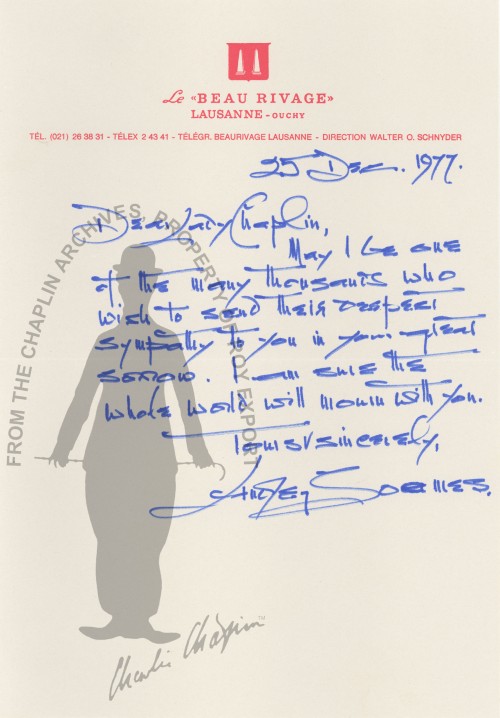 Le «BEAU RIVAGE»
LAUSANNE - OUCHY
TÉL. (021) 26 38 31 - TÉLEX 2 43 41 - TÉLÉGR. BEAURIVAGE LAUSANNE - DIRECTION WALTER O. SCHNYDER
25 Dec. 1977.
Dear Lady Chaplin,
May I be one
of the many thousands who
wish to send their deepest
sympathy to you in your great
sorrow. I am sure the
whole world will mourn with you.
Yours v sincerely,
Soames.
FROM THE CHAPLIN ARCHIVES, PROPERTY OF ROY EXPORT
Charlie Chaplin™